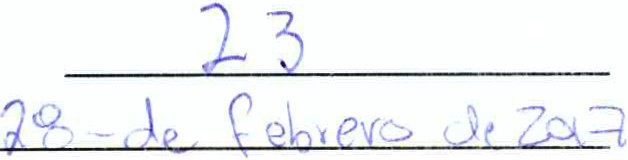 23
28-de febrero de 2017